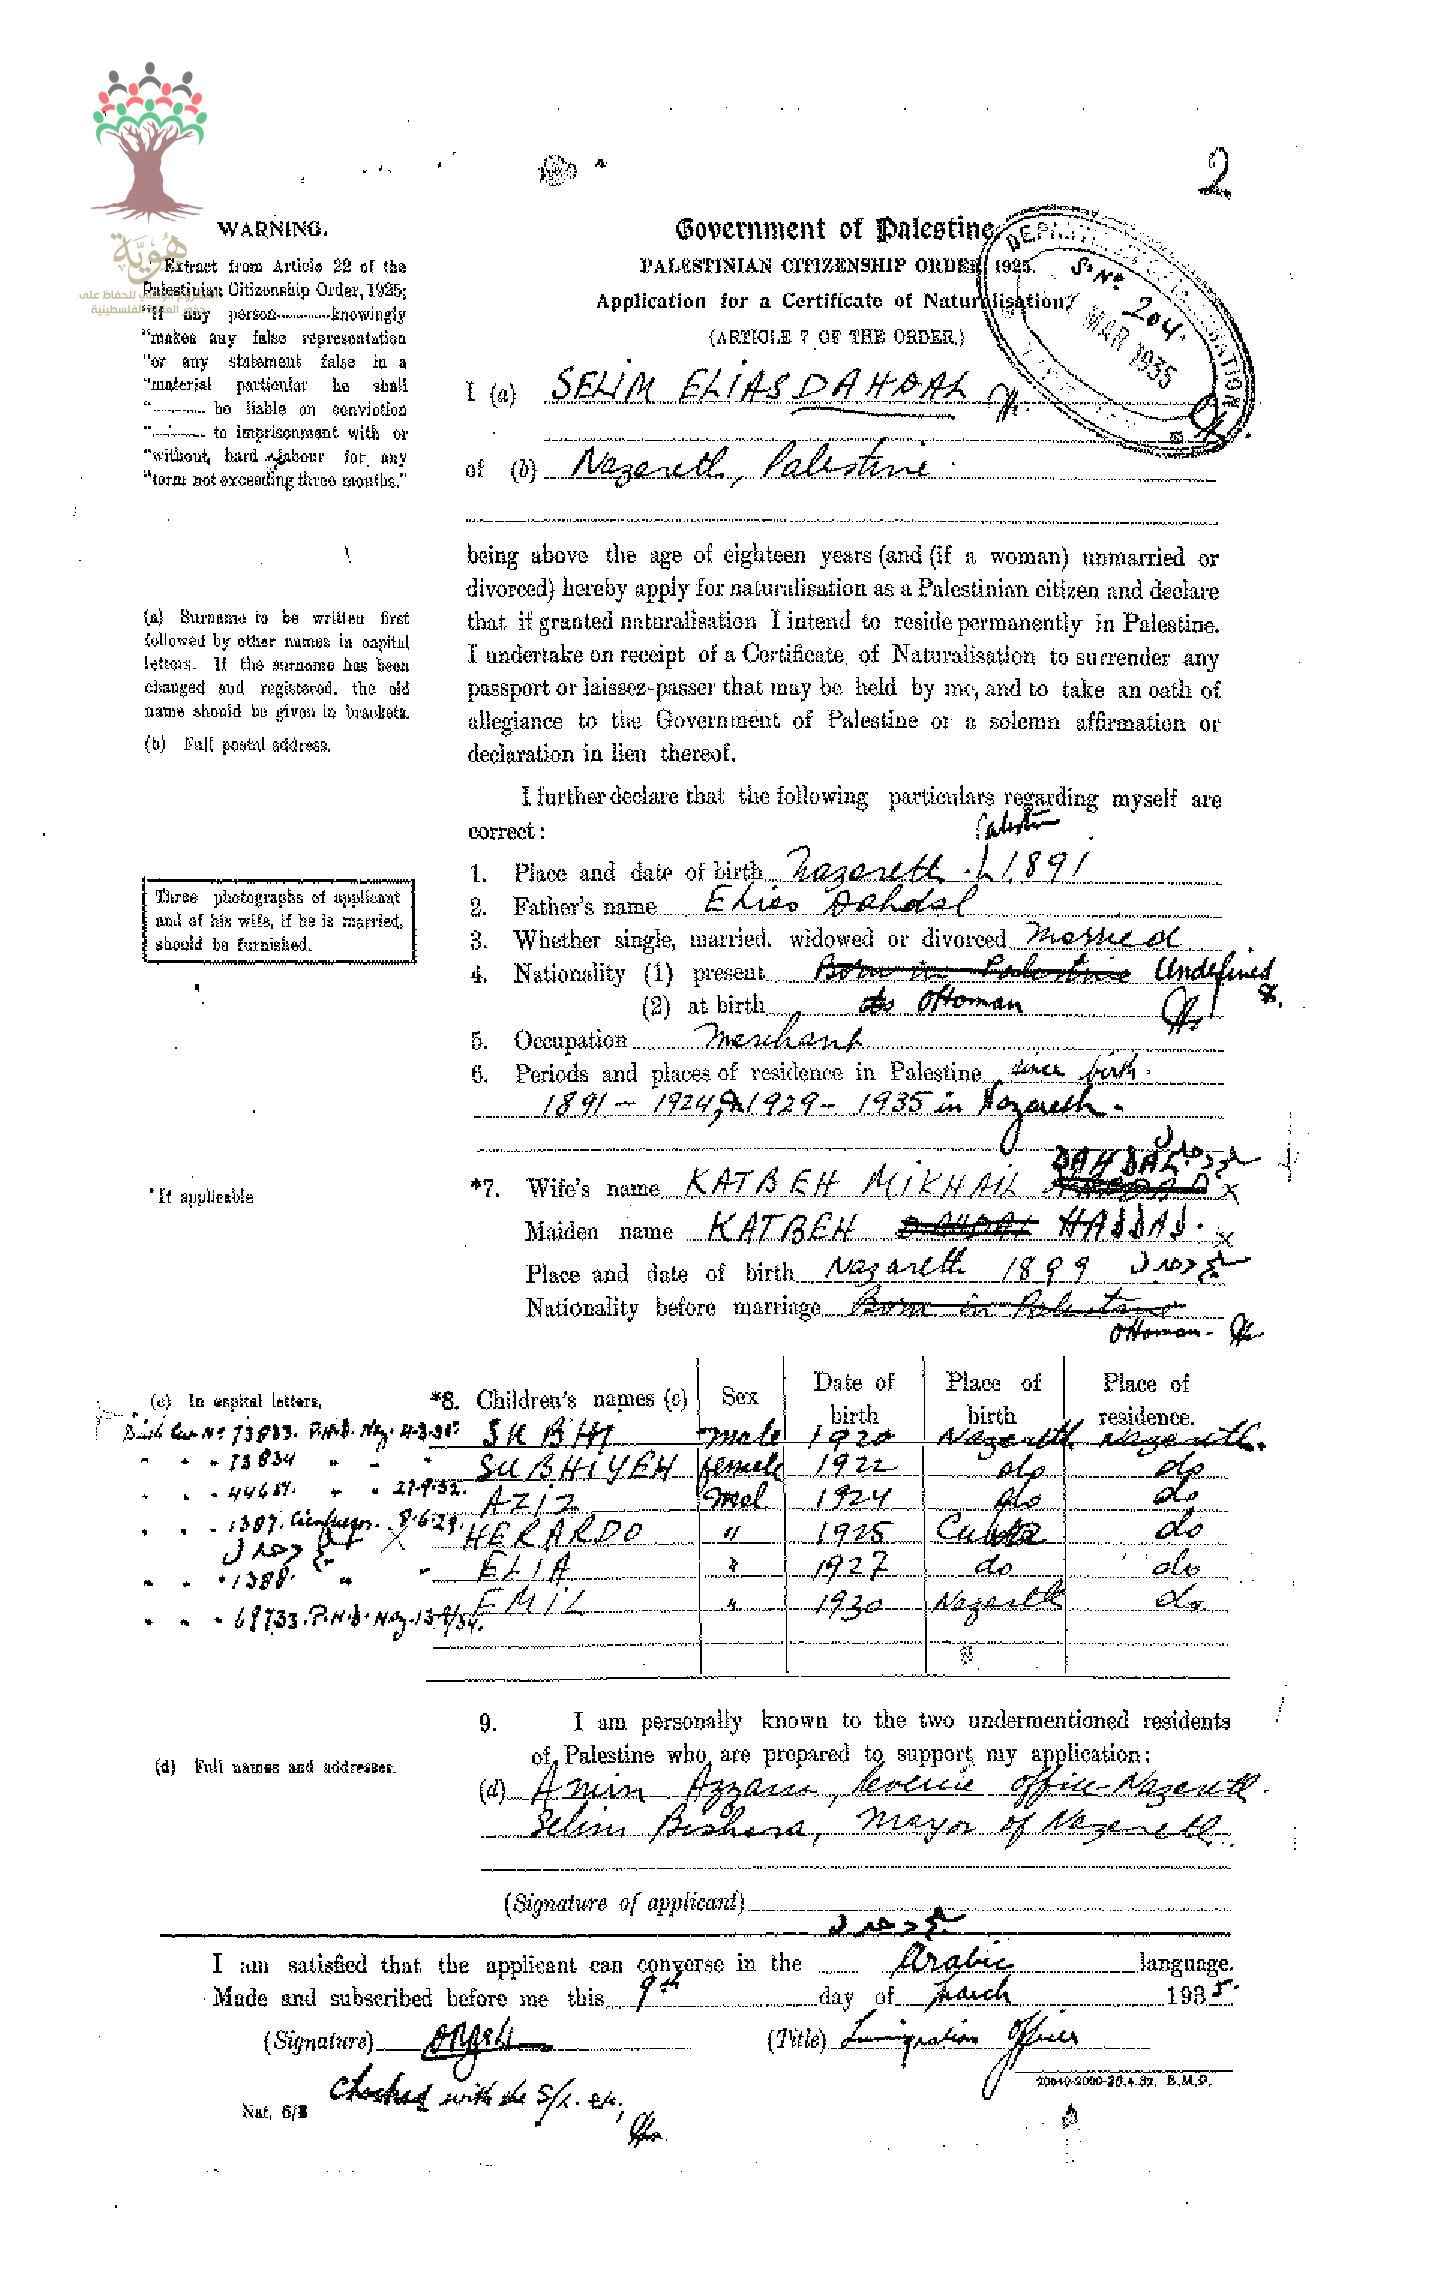 2
WARNING.
Extract from Article 22 of the
Palestinian Citizenship Order, 1925:
"If any person............knowingly
"makes any false representation
"or any statement false in a
"material particular he shall
"............ be liable on conviction
"............ to imprisonment with or
"without, hard labour for any
"term not exceeding three months."
هُويَّة
Government of Palestine.
PALESTINIAN CITIZENSHIP ORDER, 1925.
Application for a Certificate of Naturalisation
(ARTICLE 7 OF THE ORDER.)
S. No. 204
MAR 1935
I (a) SELIM ELIAS DAHDAL
of (b) Nazareth, Palestine.
being above the age of eighteen years (and (if a woman) unmarried or
divorced) hereby apply for naturalisation as a Palestinian citizen and declare
that if granted naturalisation I intend to reside permanently in Palestine.
I undertake on receipt of a Certificate of Naturalisation to surrender any
passport or laissez-passer that may be held by me, and to take an oath of
allegiance to the Government of Palestine or a solemn affirmation or
declaration in lieu thereof.
(a) Surname to be written first
followed by other names in capital
letters. If the surname has been
changed and registered, the old
name should be given in brackets.
(b) Full postal address.
I further declare that the following particulars regarding myself are
correct:
Three photographs of applicant
and of his wife, if he is married,
should be furnished.
1. Place and date of birth Nazareth 1891
2. Father's name Elias Dahdal
3. Whether single, married, widowed or divorced Married
4. Nationality (1) present Born in Palestine Undefined
(2) at birth do Ottoman
5. Occupation Merchant
6. Periods and places of residence in Palestine since birth.
1891 - 1924, 1929 - 1935 in Nazareth.
*If applicable
DAHDAL
*7. Wife's name KATBEH MIKHAIL
Maiden name KATBEH DAHDAL HADDAD.
Place and date of birth Nazareth 1899
Nationality before marriage Born in Palestine
Ottoman.
(c) In capital letters.
*8. Children's names (c) Sex Date of birth Place of birth Place of residence.
Birth Cer. No 73833. P.H.D. Naz. SUBHI male 1920 Nazareth Nazareth.
" " " 73834 " " " SUBHIYEH female 1922 do do
" " " " " 27-9-32. AZIZ mal 1924 do do
" " " 1387. Cienfuegos. 8-6-29. HERARDO " 1925 Cuba do
" " " 1388. " " ELIA " 1927 do do
" " " 69733. P.H.D. Naz. EMIL " 1930 Nazareth do
9. I am personally known to the two undermentioned residents
of Palestine who are prepared to support my application:
(d) Full names and addresses.
(d) Amin Azzam, Revenue office Nazareth.
Selim Bishara, Mayor of Nazareth.
(Signature of applicant)
I am satisfied that the applicant can converse in the Arabic language.
Made and subscribed before me this 9th day of March 1935.
(Signature) (Title) Immigration Officer
20040-2000-26.4.32. B.M.P.
Checked with the
Nat. 6/8